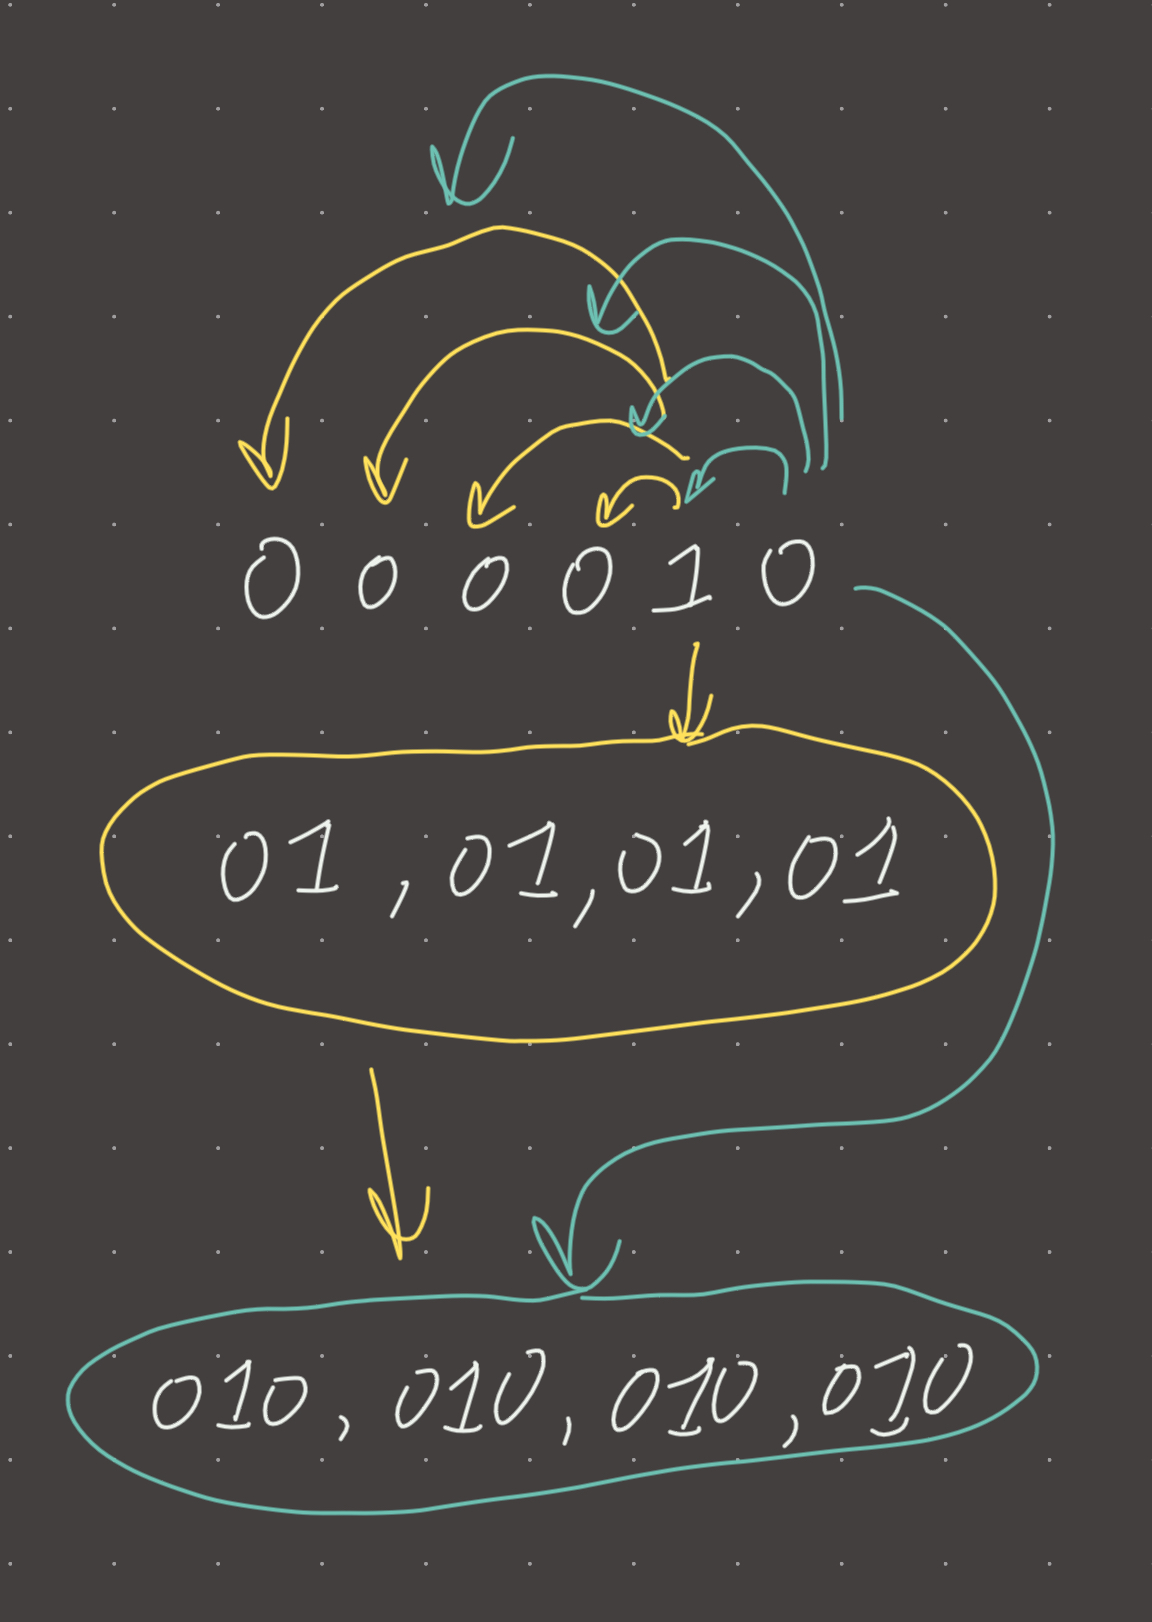 0 0 0 0 1 0
01 , 01 , 01 , 01
010 , 010 , 010 , 010